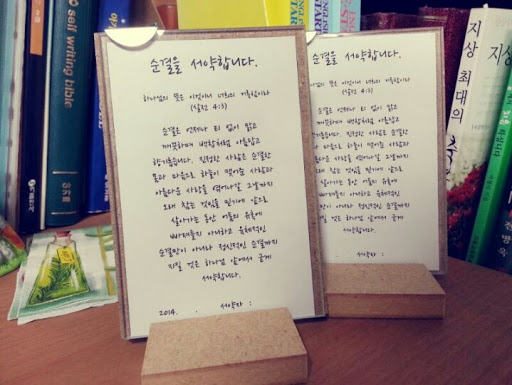 self writing bible
순결을 서약합니다.
하나님의 뜻은 이것이니 너희의 거룩함이라
(살전 4:3)
순결은 언제나 티 없이 맑고
깨끗하며 백합처럼 아름답고
향기롭습니다. 진정한 사랑은 순결한
몸과 마음으로 하늘이 맺어준 사람과
아름다운 사랑을 엮어나갈 그날까지
오래 참는 것임을 믿기에 앞으로
살아가는 동안 이들의 유혹에
빠져들지 아니하고 육체적인
순결만이 아니라 정신적인 순결까지
지킬 것을 하나님 앞에서 굳게
서약합니다.
2014. . 서약자 :
순결을 서약합니다.
하나님의 뜻은 이것이니 너희의 거룩함이라
(살전 4:3)
서약합니다.
서약자 :
지상 최대의
지상